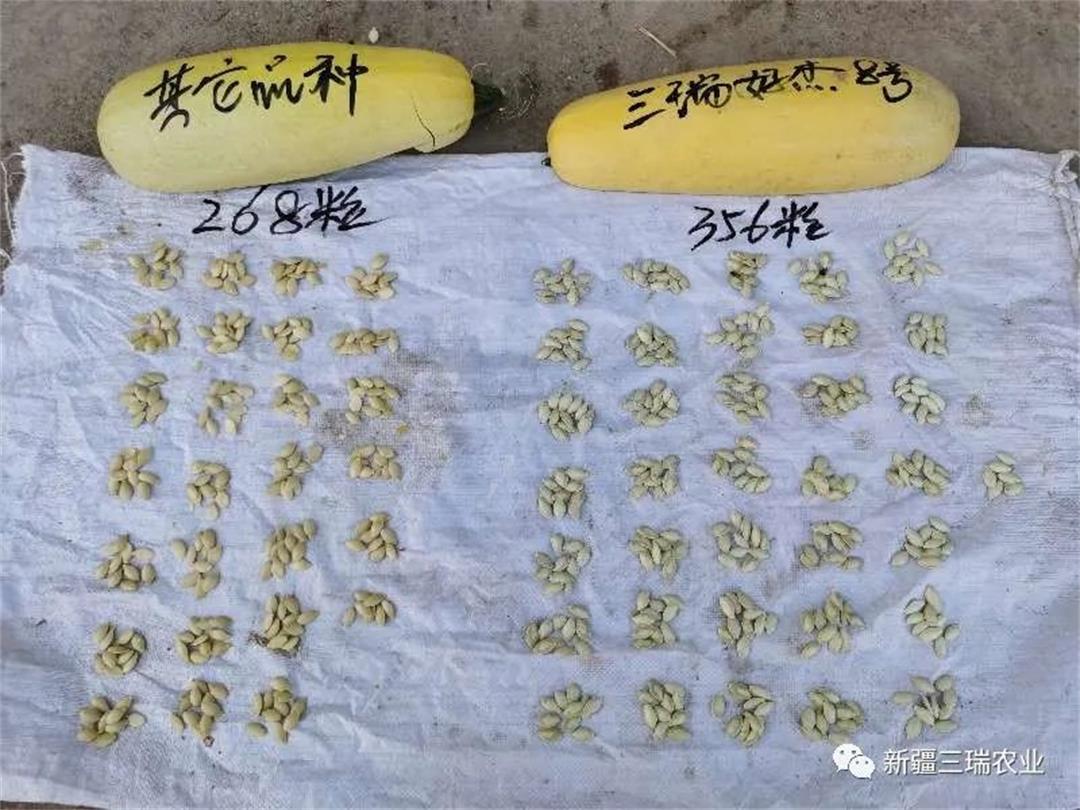 其它品种
三瑞好杰8号
268粒
356粒
新疆三瑞农业